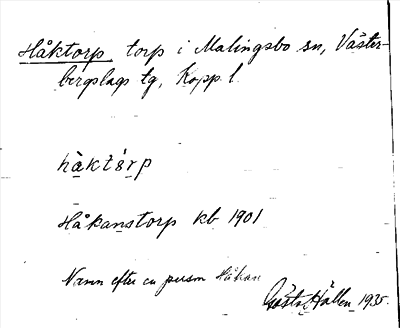 Håktorp, torp i Malingsbo sn, Väster-
bergslags tg, Kopp. l.
håktórp
Håkanstorp kb 1901
Namn efter en person Håkan
Gösta Hallén 1935.